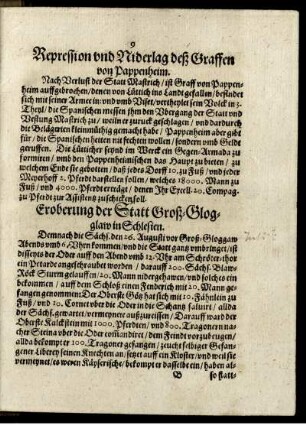 9
Repression vnd Niderlag deß Graffen
von Pappenheim.
Nach Verlust der Statt Mastrich / ist Graff von Pappen-
heim auffgebrochen / denen von Lüttich ins Land gefallen / befindet
sich mit seiner Armee in vnd vmb Viset / vertheylet sein Volck in 3.
Theyl / die Spanischen messen jhm den Vbergang der Statt vnd
Vestung Mastrich zu / weiln er zuruck geschlagen / vnd dardurch
die Belägerten kleinmüthig gemacht habe / Pappenheim aber gibt
für / die Spanischen hetten nit fechten wollen / sondern vmb Geldt
geruffen. Die Lüticher seynd im Werck ein Gegen-Armada zu
formiren / vnnd den Pappenheimischen das Haupt zu bieten / zu
welchem Ende sie gebotten / daß jedes Dorff 10. zu Fuß / vnd jeder
Meyerhoff 2. Pferdt darstellen sollen / welches 18000. Mann zu
Fuß / vnd 4000. Pferdt erträgt / denen Jhr Excell. 20. Compag.
zu Pferdt zur Assistentz zuschicken soll.
Eroberung der Statt Groß-Glog-
gaw in Schlesien.
Demnach die Sächs. den 26. Augusti vor Groß-Gloggaw
Abends vmb 6 Vhrn kommen / vnd die Statt gantz vmbringet / ist
disseyts der Oder auff den Abend vmb 12. Vhr am Schröter-thor
ein Petarde angeschraubet worden / darauff 200. Sächs. Blawe
Röck Sturm gelauffen / 20. Mann nidergehawen / vnd solches ein
bekommen / auff dem Schloß einen Fenderich mit 20. Mann ge-
fangen genommen: Der Oberste Götz hat sich mit 20. Fähnlein zu
Fuß / vnd 10. Cornet vber die Oder in die Schantz saluirt / allda
der Sächs. gewartet / vermeynet außzureissen / Darauff ward der
Oberste Kalckstein mit 1000. Pferden / vnd 800. Tragonern na-
cher Steina vber die Oder commandiret / dem Feindt vorzubeugen /
allda bekompt er 100. Tragoner gefangen / zeucht selbiger Gefan-
gener Liberey seinen Knechten an / setzet auff ein Kloster / vnd weil sie
vermeynet / es weren Käyserische / bekompt er dasselbt ein / haben al-
B so statt-